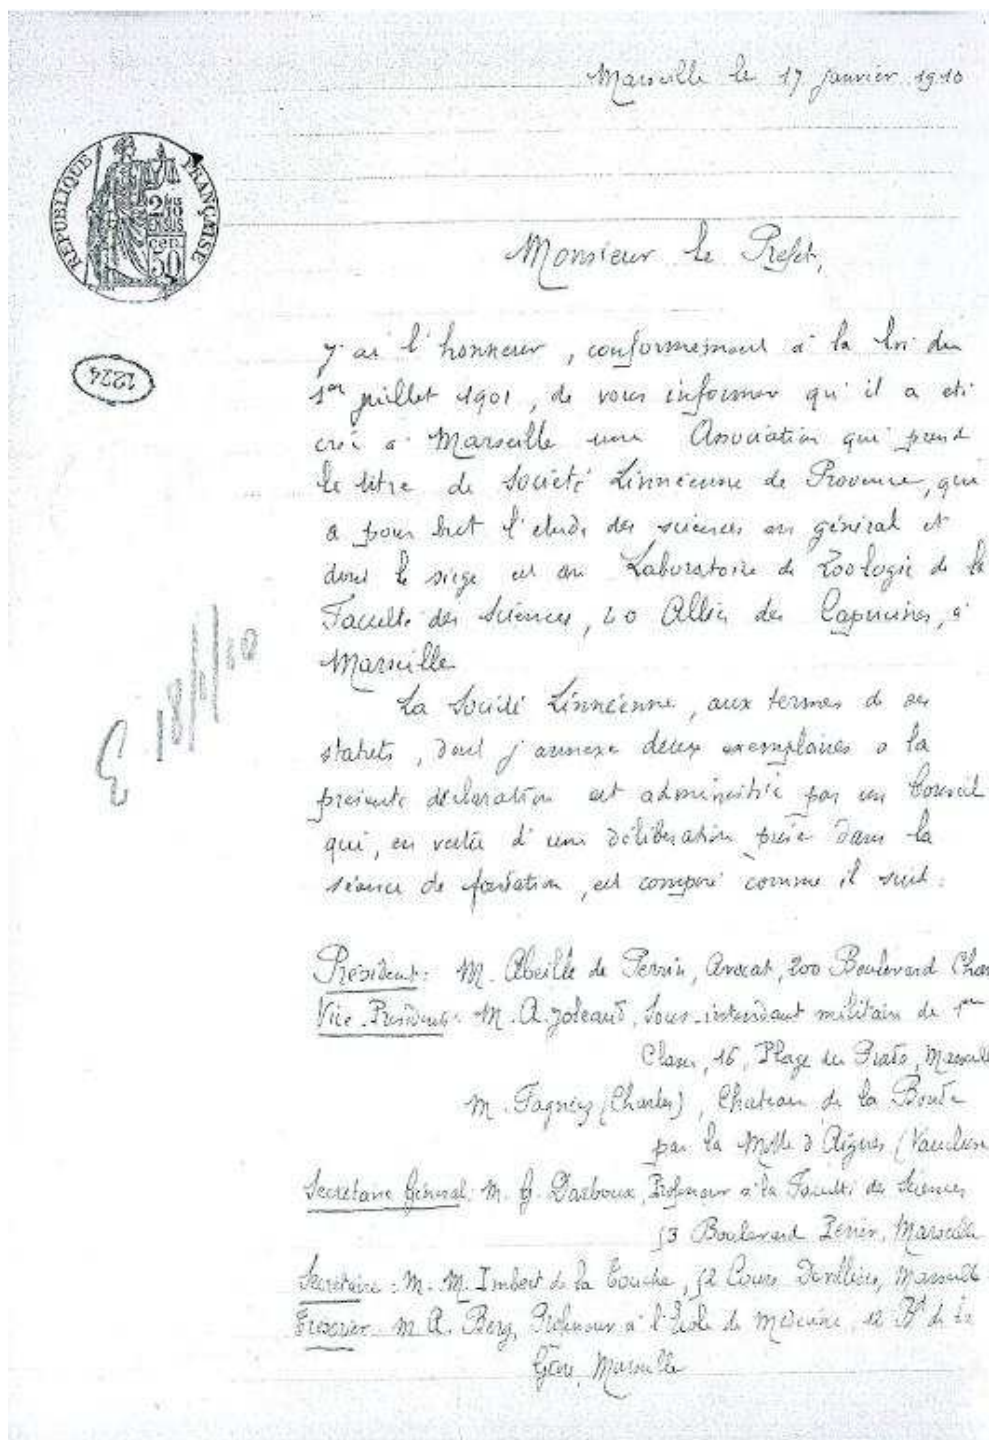 Marseille le 17 janvier 1910
REPUBLIQUE FRANÇAISE
2/10 EN SUS
cen. 50
Monsieur le Prefet,
1224
J'ai l'honneur, conformement à la loi du
1er juillet 1901, de vous informer qu'il a eté
créé à Marseille une Association qui prend
le titre de Société Linnéenne de Provence, qui
a pour but l'etude des sciences en général et
dont le siège est au Laboratoire de Zoologie de la
Faculté des Sciences, 40 Allées des Capucines, à
Marseille
La Société Linnéenne, aux termes de ses
statuts, dont j'annexe deux exemplaires a la
presente déclaration est administrée par un Conseil
qui, en vertu d'une délibération prise dans la
séance de fondation, est composé comme il suit :
Président : M. Abeille de Perrin, Avocat, 200 Boulevard
Vice-Présidents : M. A. Joleaud, Sous-intendant militaire de 1ere
Classe, 16, Plage du Prado, Marseille
M. Fagniez (Charles), Chateau de la Bonde
par la Motte d'Aigues (Vaucluse
Secrétaire Général : M. G. Darboux, Professeur à la Faculté des Sciences
53 Boulevard Perier, Marseille
Secrétaire : M. M. Imbert de la Touche, 52 Cours Devilliers, Marseille
Trésorier M A. Berg, Professeur à l'Ecole de Medecine, 12 Bd de la
Gare, Marseille